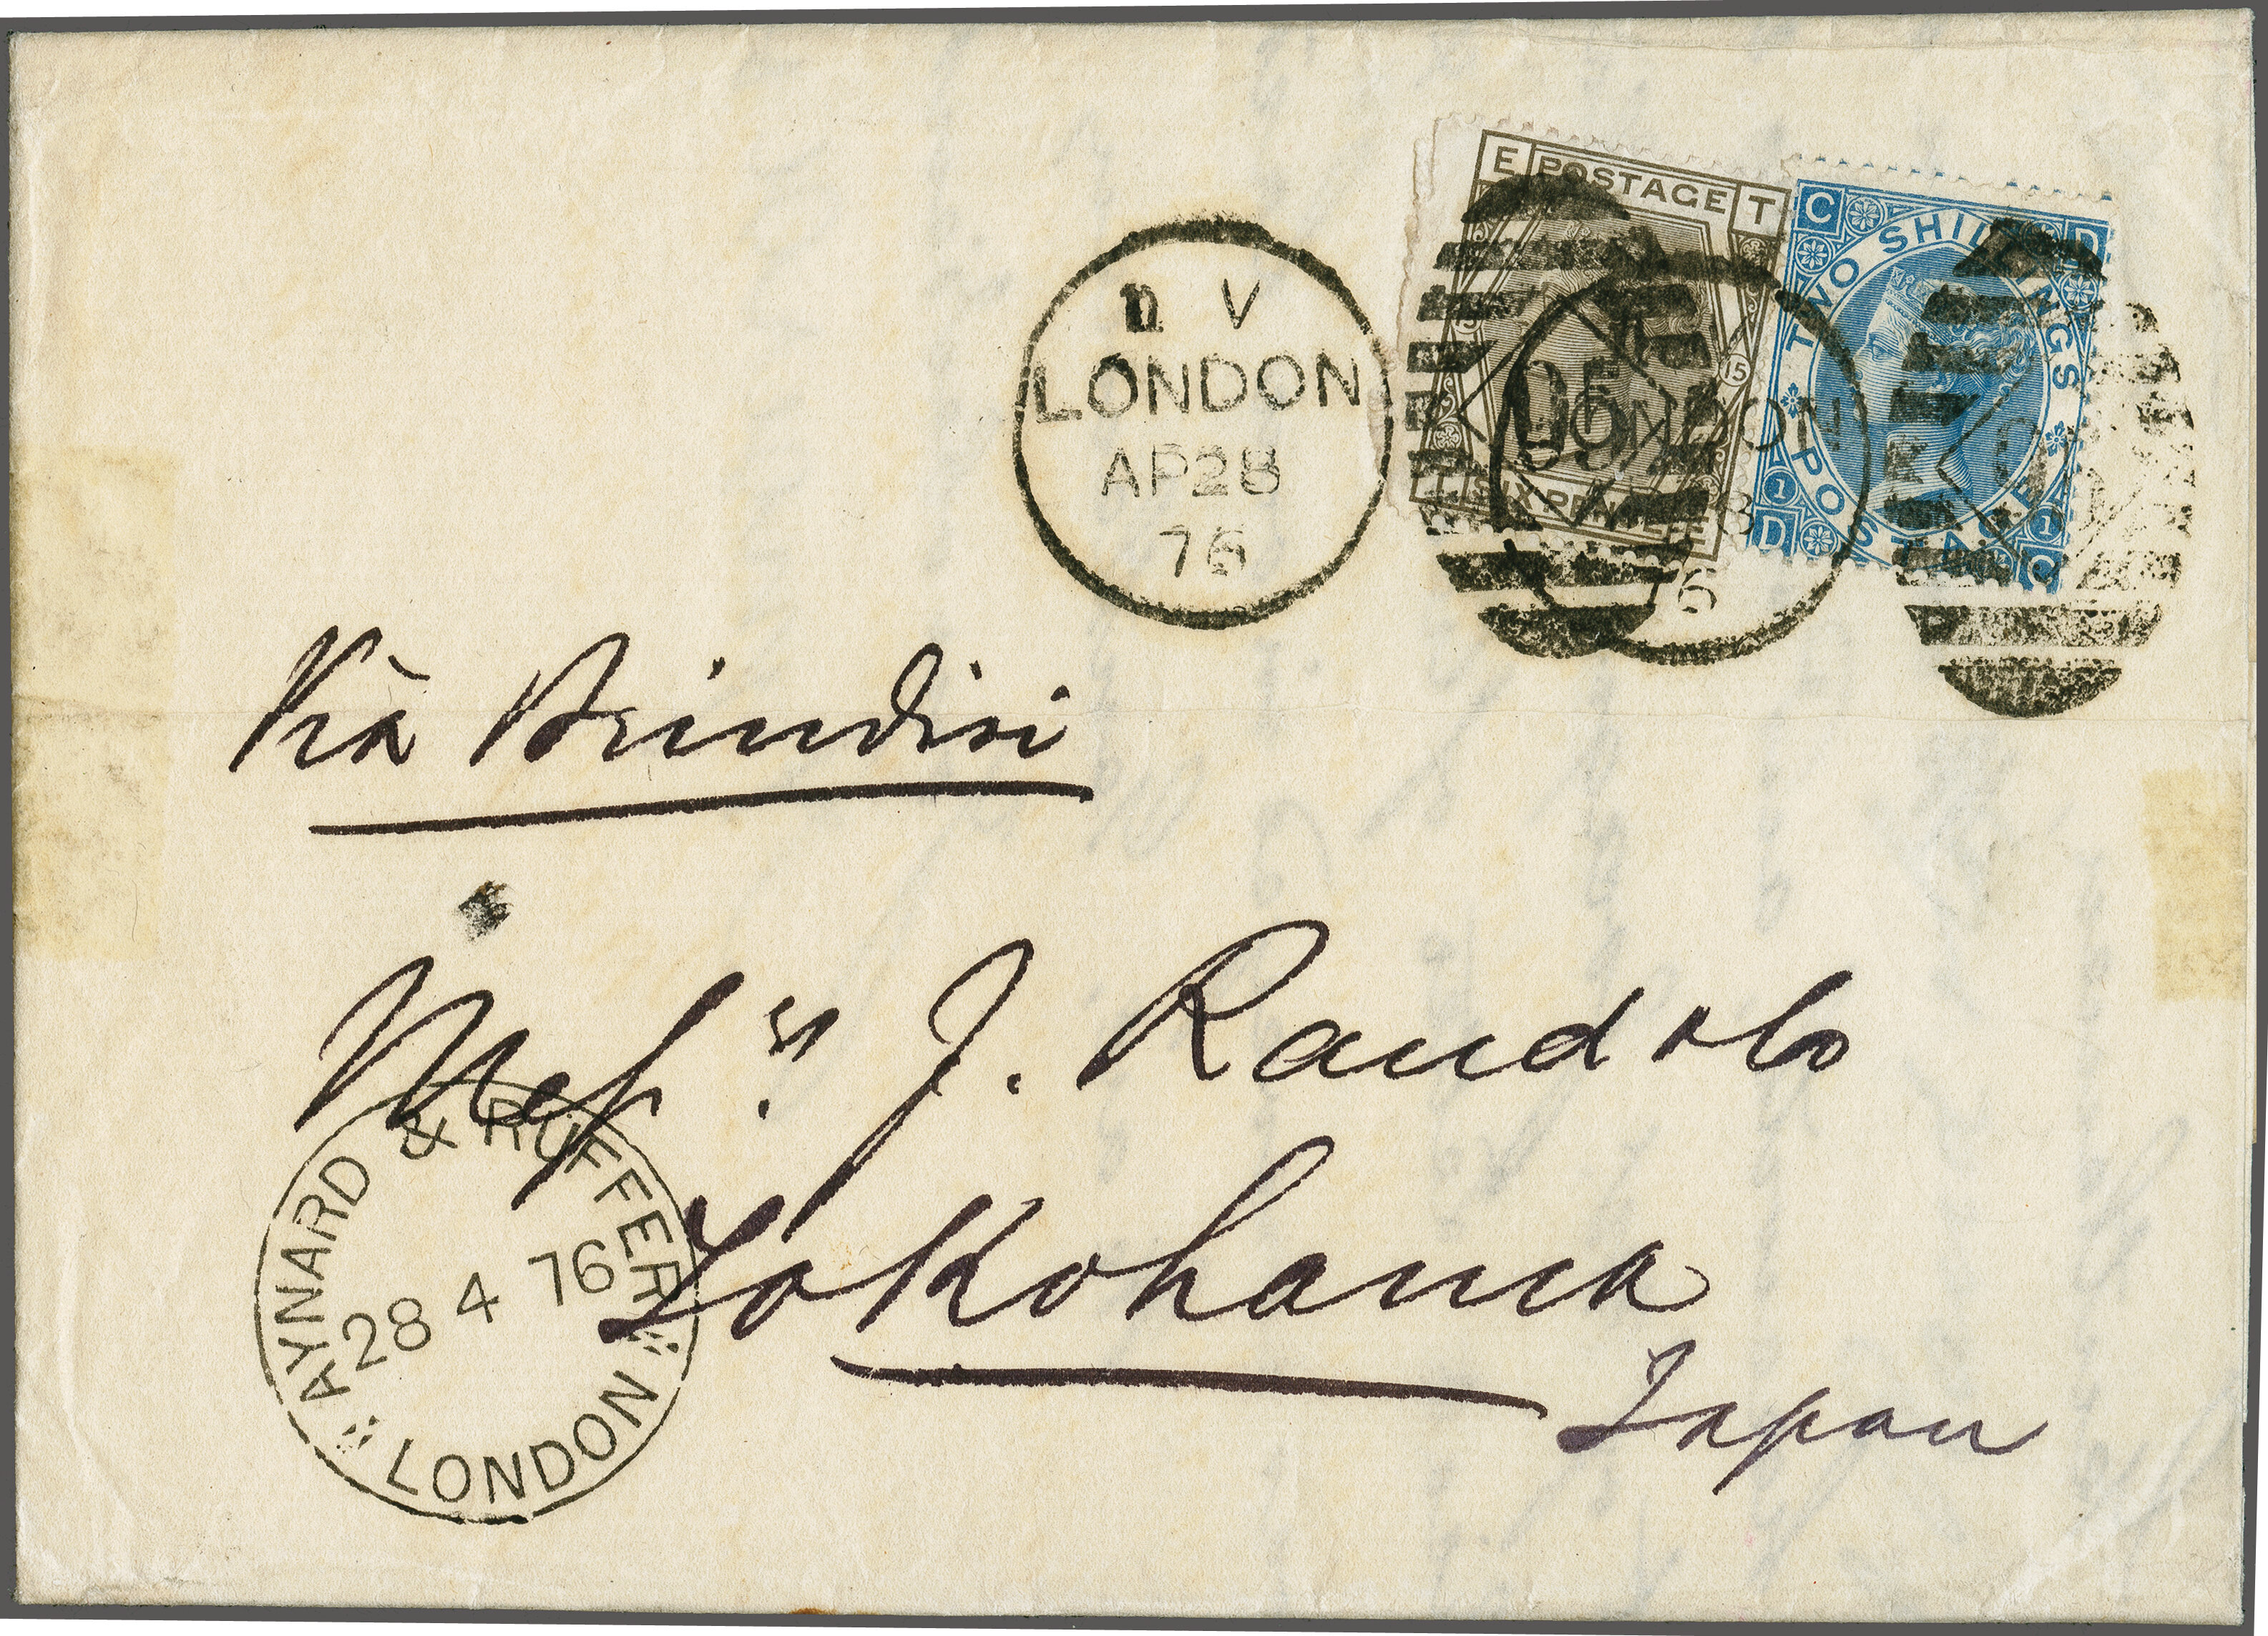 E POSTAGE T
15 15
T SIX PENCE E
C TWO SHILLINGS D
1 POSTAGE 1
D C
V
LONDON
AP 28
76
95
LONDON
76
Vià Brindisi
Mess.rs J. Rand & Co
Yokohama
Japan
AYNARD & RUFFER
28 4 76
LONDON